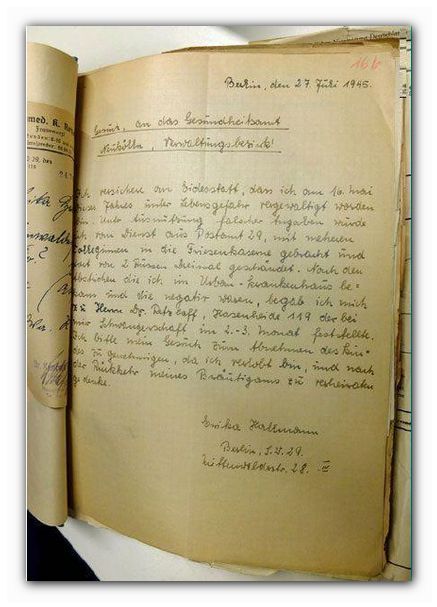 166
Berlin, den 27. Juli 1945.
Gesuch, an das Gesundheitsamt
Neukölln, Verwaltungsbezirk!
Ich versichere an Eidesstatt, dass ich am 16. Mai
dieses Jahres unter Lebensgefahr vergewaltigt worden
bin. Unter Ausnutzung falscher Angaben wurde
ich vom Dienst aus Postamt 29, mit meheren
Kolleginnen in die Friesenkaserne gebracht und
dort von 2 Russen Dreimal geschändet. Nach den
Abstichen die ich im Urban-Krankenhaus be-
kam und die negativ waren, begab ich mich
zu Herrn Dr. Hasenheide 119 der bei
mir Schwangerschaft im 2.-3. Monat feststellte.
Ich bitte mein Gesuch zum Abnehmen des Kin-
des zu genehmigen, da ich verlobt bin, und nach
der Rückkehr meines Bräutigams zu verheiraten
gedenke.
Erika
Berlin, S.W. 29.
28. IV
med. K.
Frauenarzt